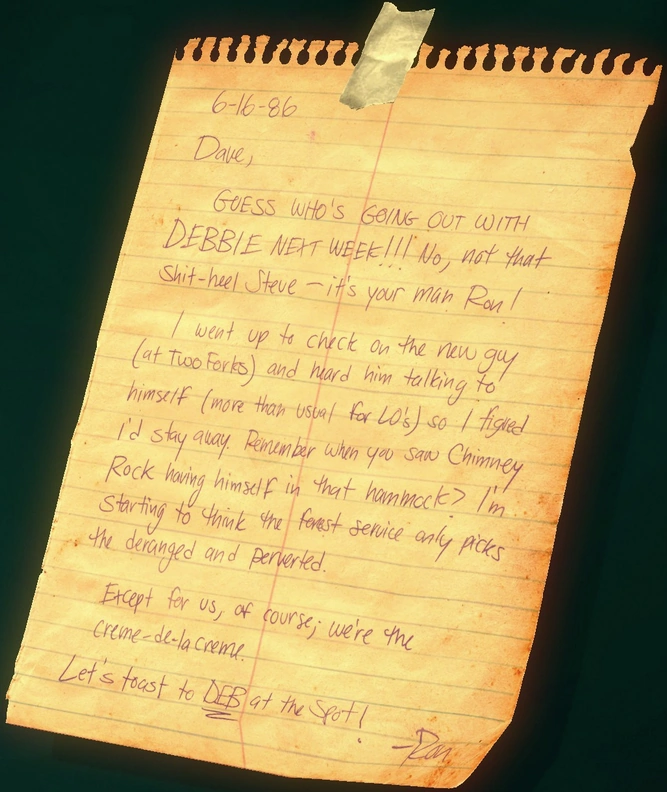 6-16-86
Dave,
GUESS WHO'S GOING OUT WITH
DEBBIE NEXT WEEK!!! No, not that
shit-heel Steve - it's your man Ron!
I went up to check on the new guy
(at Two Forks) and heard him talking to
himself (more than usual for LO's) so I figred
i'd stay away. Remember when you saw Chimney
Rock having himself in that hammock? I'm
starting to think the forest service only picks
the deranged and perverted.
Except for us, of course; we're the
creme-de-la creme.
Let's toast to DEB at the Spot!
-Ron